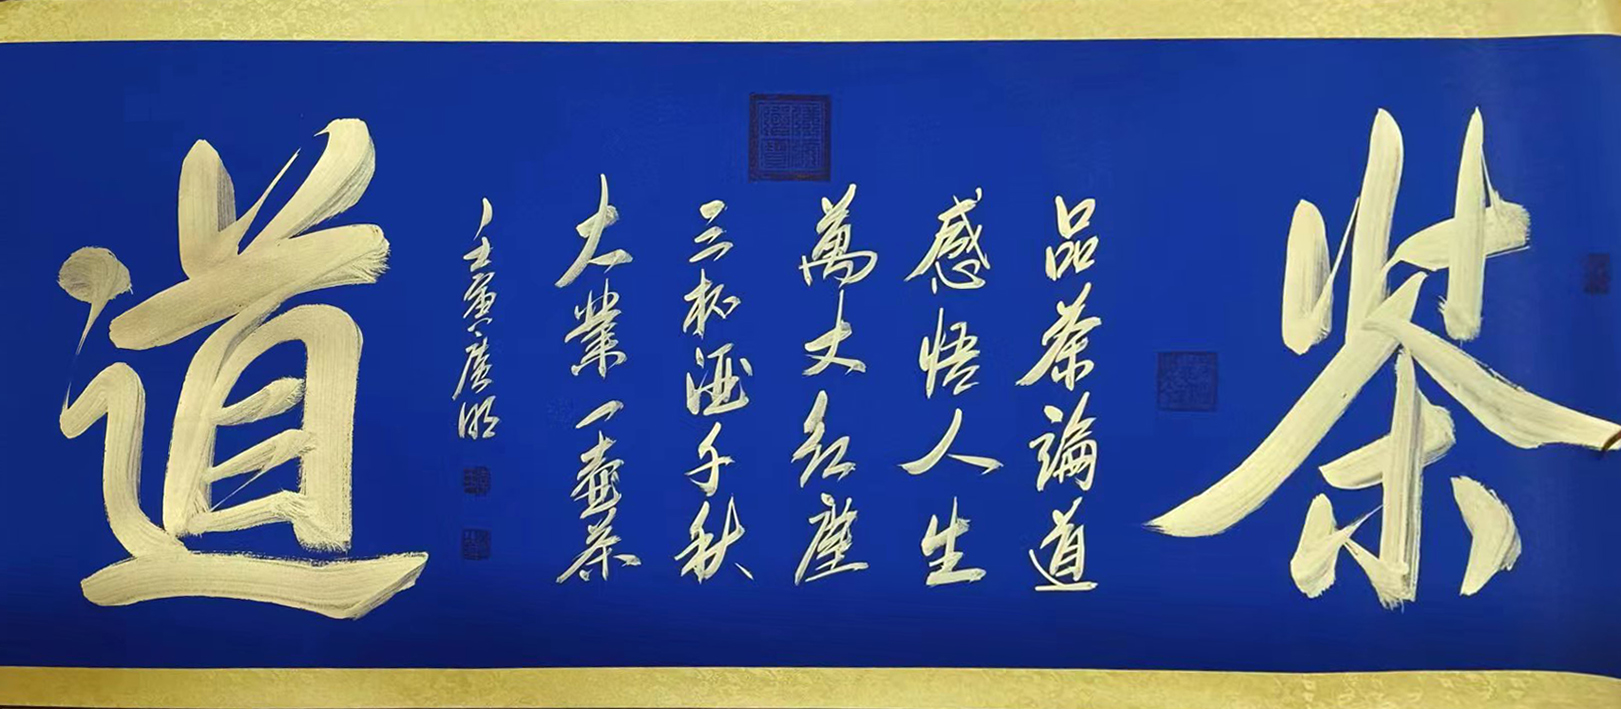 茶
品茶論道
感悟人生
萬丈紅塵
三杯酒千秋
大業一壺茶
壬寅廣明
道